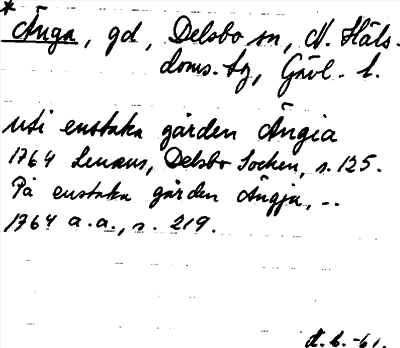 * Änga, gd, Delsbo sn, N. Häls-
doms. hg, Gävl. l.
uti enstaka gården Ängia
1764 Lenæus, Delsbo Socken, s. 125.
På enstaka gården Ängja, ..
1764 a.a., s. 219.
-61.